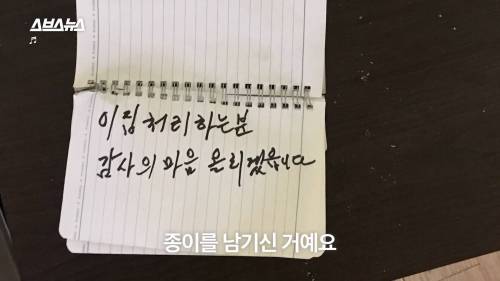 스브스뉴스
이 집 처리하는분
감사의 마음 올리겠읍니다
종이를 남기신 거예요